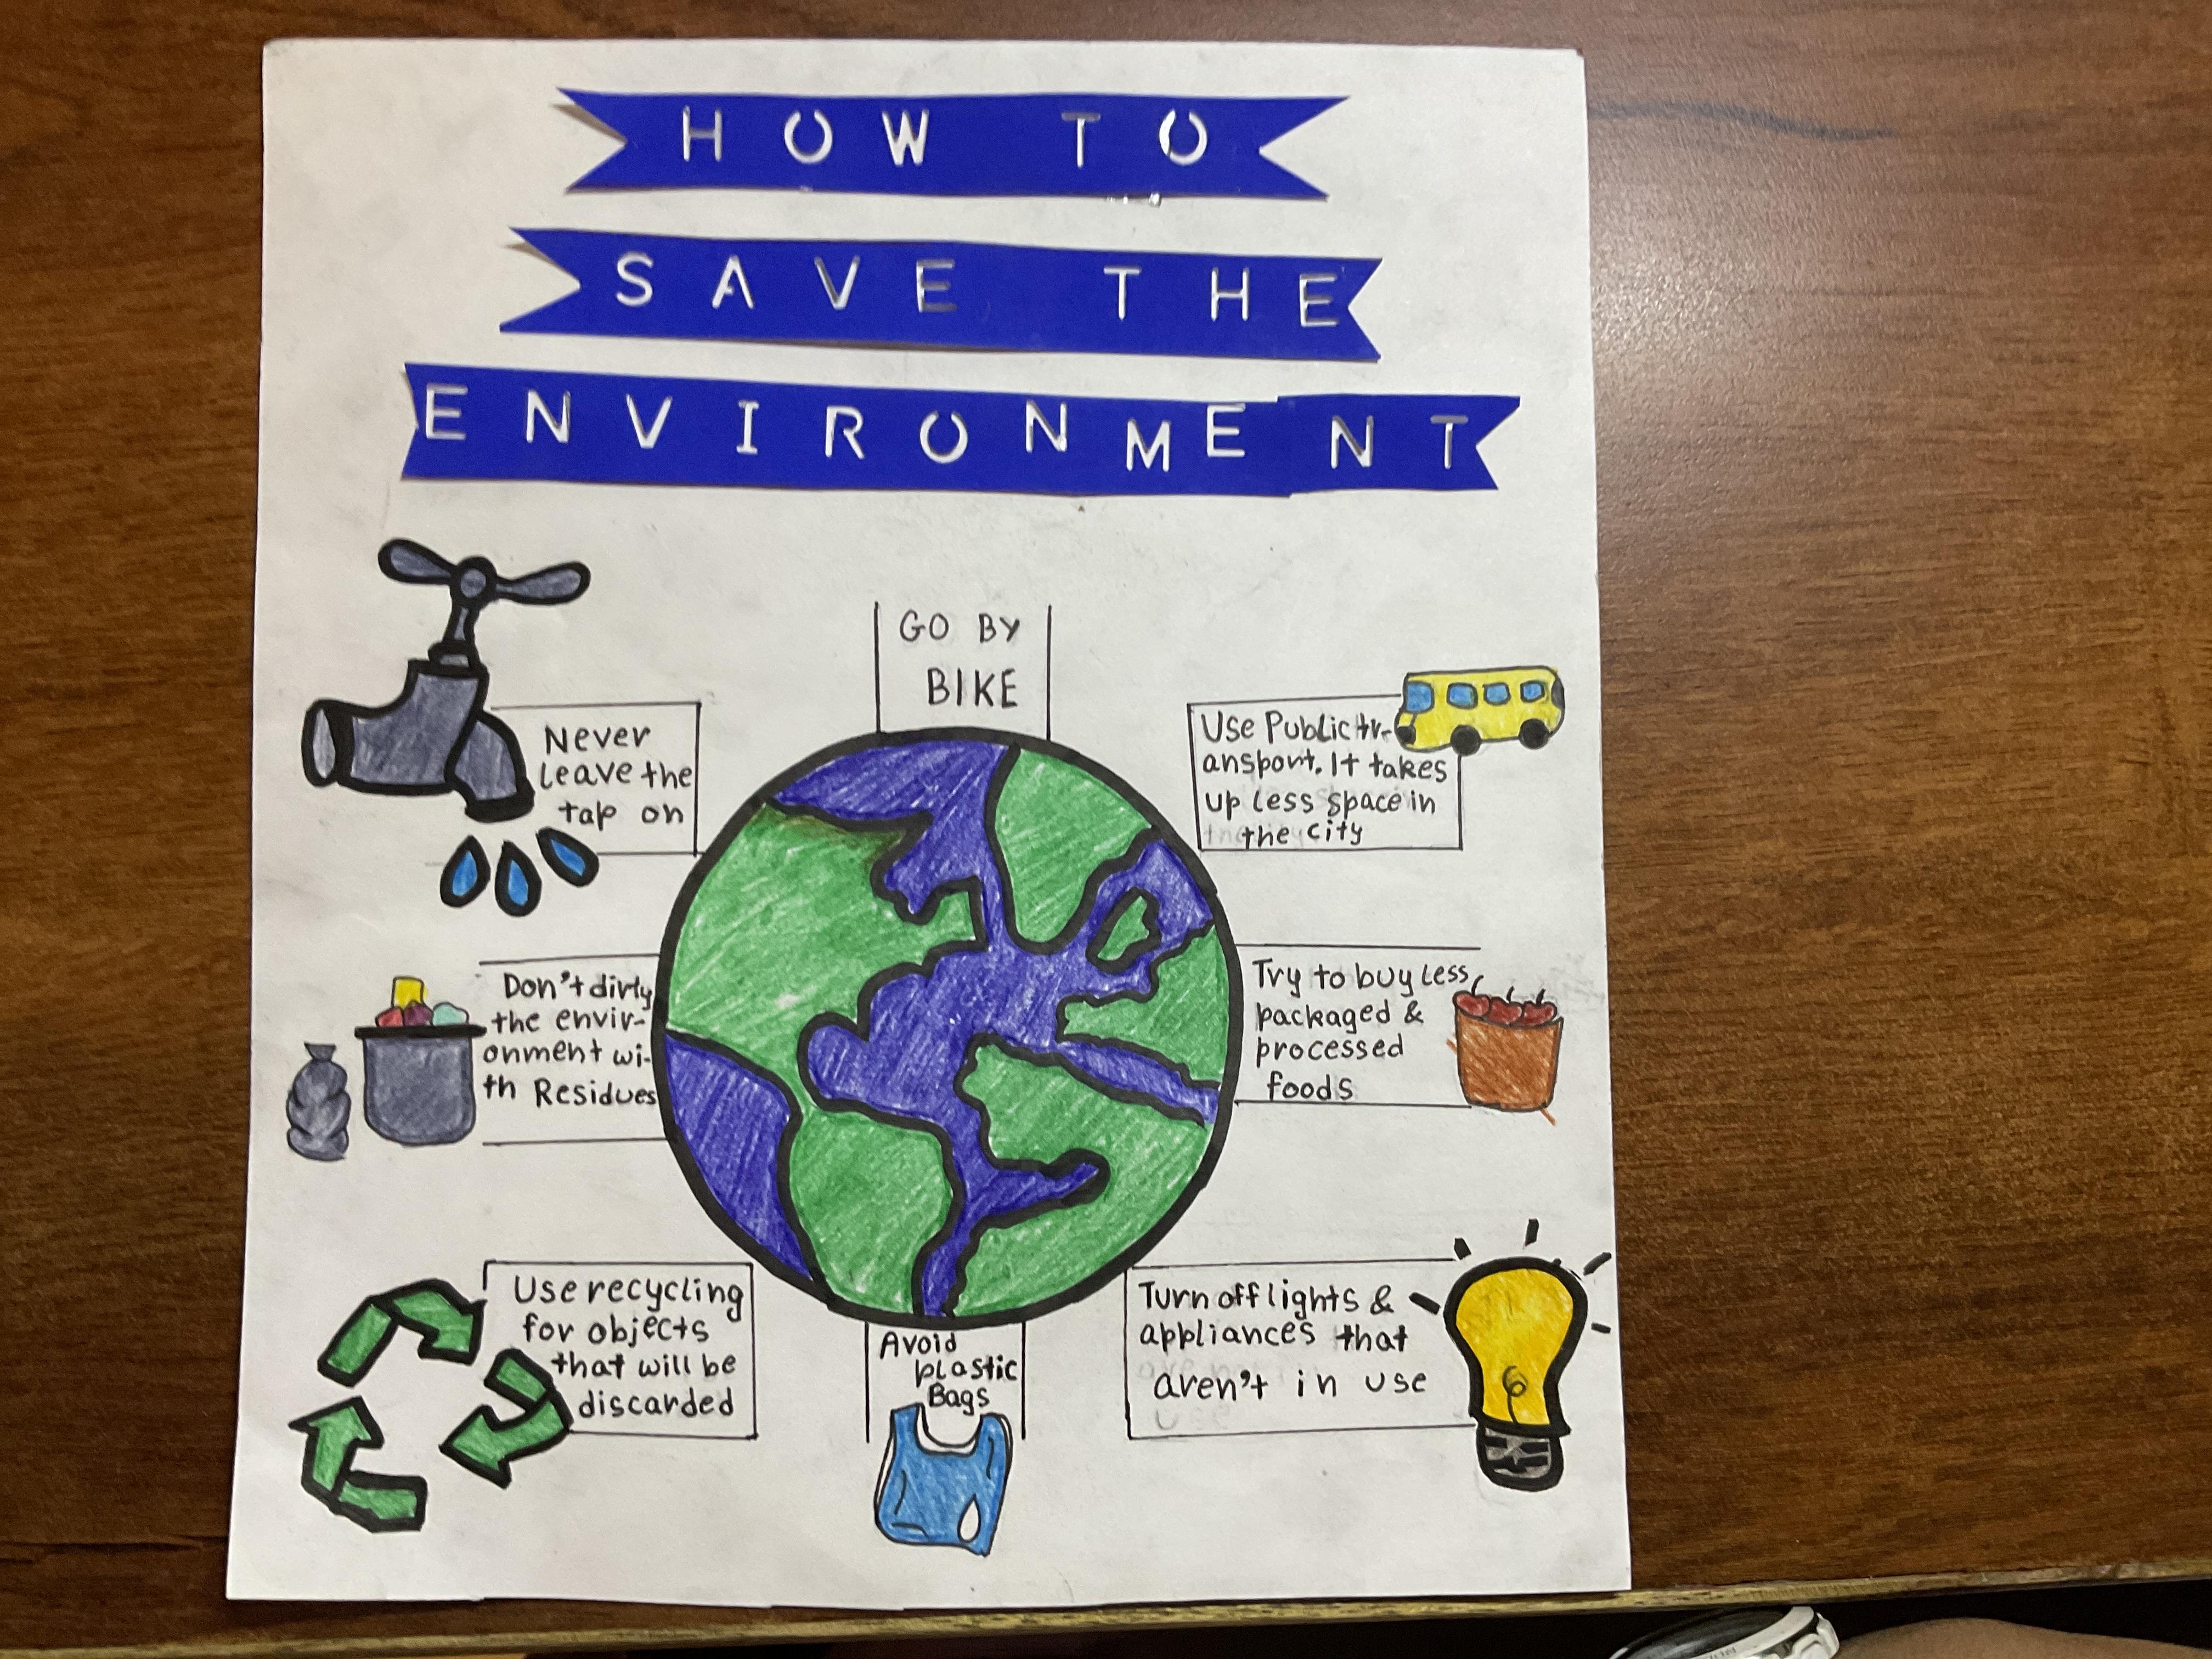 HOW TO
SAVE THE
ENVIRONMENT
GO BY
BIKE
Never
Leave the
tap on
Use Public tr-
ansport. It takes
up less space in
the city
Don't dirty
the envir-
onment wi-
th Residues
Try to buy less
packaged &
processed
foods
Use recycling
for objects
that will be
discarded
Avoid
plastic
Bags
Turn off lights &
appliances that
aren't in use